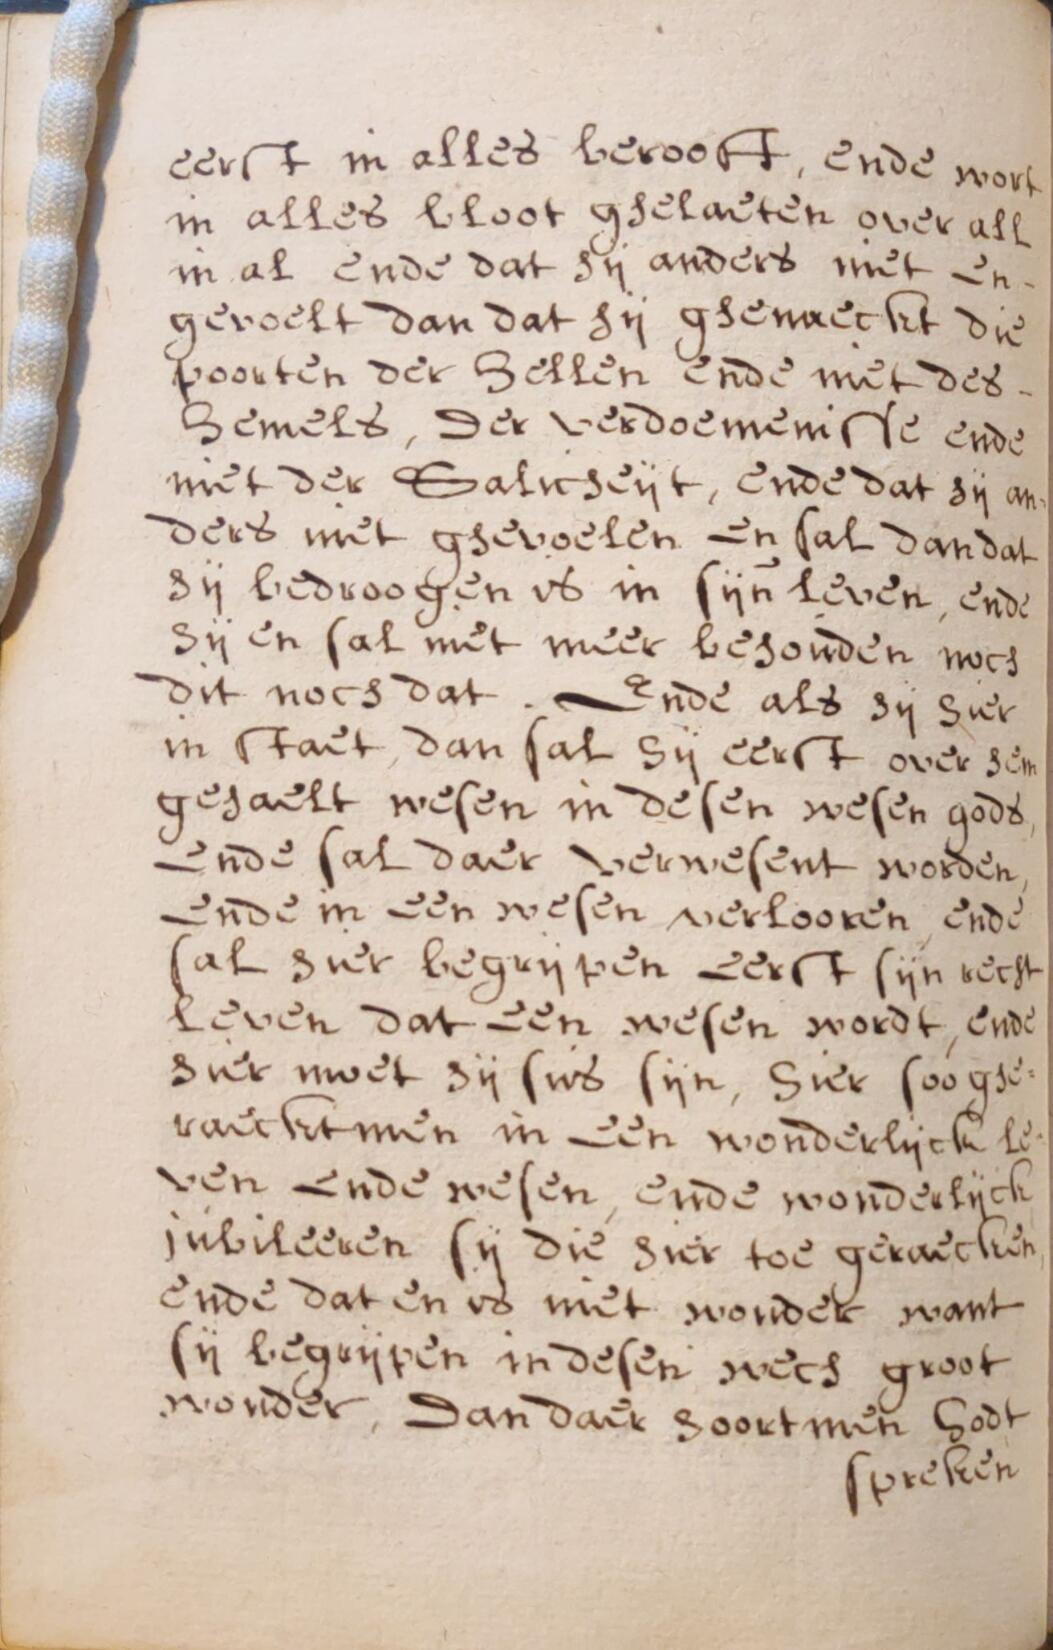 eerst in alles berooft, ende wort
in alles bloot ghelaeten over all
in al ende dat hij anders niet en-
gevoelt dan dat hij ghenaeckt die
poorten der Hellen ende niet des-
Hemels, Der verdoemenisse ende
niet der Salicheijt, ende dat hij an-
ders niet ghevoelen en sal dan dat
hij bedroogen is in sijn̄ leven, ende
hij en sal niet meer behouden noch
dit noch dat. Ende als hij hier
in staet, dan sal hij eerst over hem
gehaelt wesen in desen wesen gods,
Ende sal daer verwesent worden,
Ende in een wesen verlooren, ende
sal hier begrijpen eerst sijn recht
leven dat een wesen wordt, ende
hier moet hij sus sijn, hier soo ghe-
raecktmen in een wonderlijck le-
ven ende wesen, ende wonderlijck
jubileeren sij die hier toe geraecken,
ende dat en is niet wonder want
sij begrijpen in desen wech groot
wonder, Dan daer hoortmen Godt
spreken